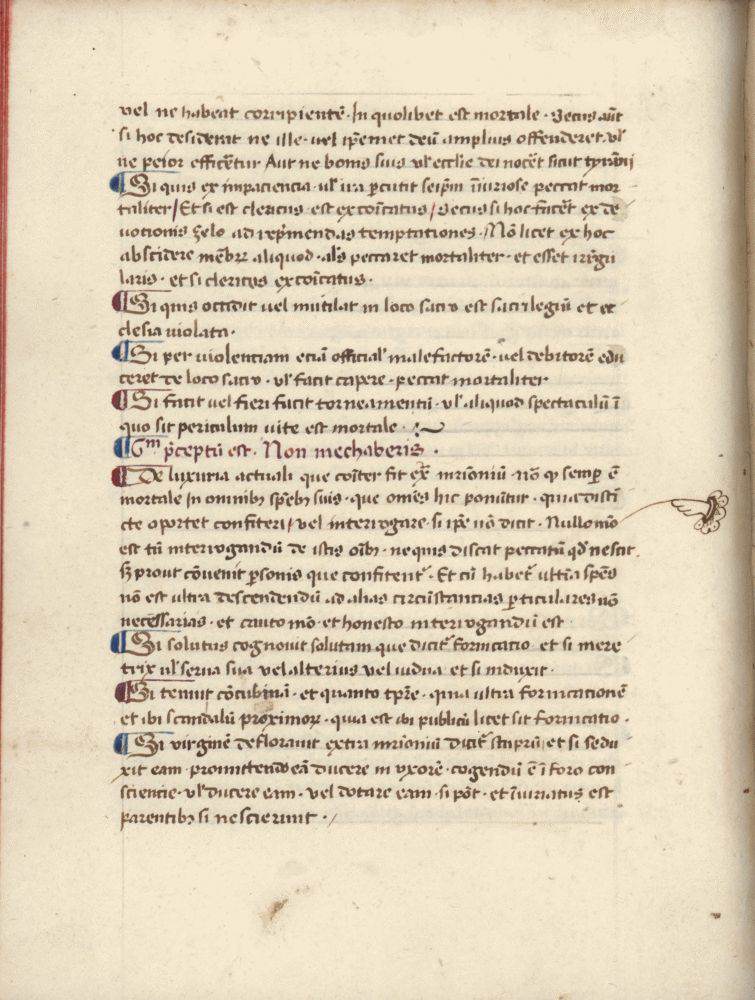 vel ne habeat corripientē · In quolibet est mortale · Secus aūt
si hoc desiderat ne ille · vel ip̄emet deū amplius offenderet · vl̄
ne peior efficēt̄ur Aut ne bonis suis vl̄ eccl̄ie dei nocēt sicut tyrāni
¶ Si quis ex impaciencia · vl̄ ira ꝑcutit seip̄m iīuriose peccat mor
taliter / Et si est clericus est excoīcatus / Secus si hoc facēt ex de
uotionis zelo ad rep̄mendas temptationes · Nō licet ex hoc
abscidere mēbrū aliquod · al̄s peccaret mortaliter · et esset irregu
laris · et si clericus excoīcatus ·
¶ Si quis occidit vel mutilat in loco sacro est sacrilegiū et ec
clesia violata ·
¶ Si per violentiam eciā official̄ malefactorē · vel debitorē edu
ceret de loco sacro · vl̄ facit capere · peccat mortaliter
¶ Si facit vel fieri facit torneamentū · vl̄ aliquod spectaculū ī
quo sit periculum vite est mortale ·
¶ Gᵐ p̄ceptū est · Non mechaberis ·
¶ De luxuria actuali que cōiter fit ex̄ mr̄imoniū · nō qꝫ semꝑ ē
mortale In omnibꝫ sp̄ebꝫ suis · que om̄es hic ponūtur · qua disti
cte oportet confiteri / vel interrogare · si ip̄e nō dicit · Nullo mō
est tn̄ interrogandū de istis oībꝫ · ne quis discat peccatū qd̄ nescit ·
sꝫ prout cōuenit ꝑsonis que confitent̄ · Et cū habet̄ ultīa sp̄es
nō est ultra descendendū ad alias circūstantias ꝑticulares nō
necessarias · et cauto mō · et honesto interrogandū est
¶ Si solutus cognouit solutam que dicit̄ fornicatio et si mere
trix vl̄ serua sua vel alterius vel uidua et si induxit ·
¶ Si tenuit cōcubinā · et quanto tp̄re · quia ultra fornicationē
et ibi scandalū proximoꝝ · quia est ibi publicū licet sit fornicatio ·
¶ Si virginē deflorauit extra mr̄imoniū dicit̄ stuprū / et si sedu
xit eam promittendo eā ducere in vxorē · cogendū ē ī foro con
sciencie · vl̄ ducere eam · vel dotare eam · si pōt · et īiuriatus est
parentibꝫ si nescierunt · /